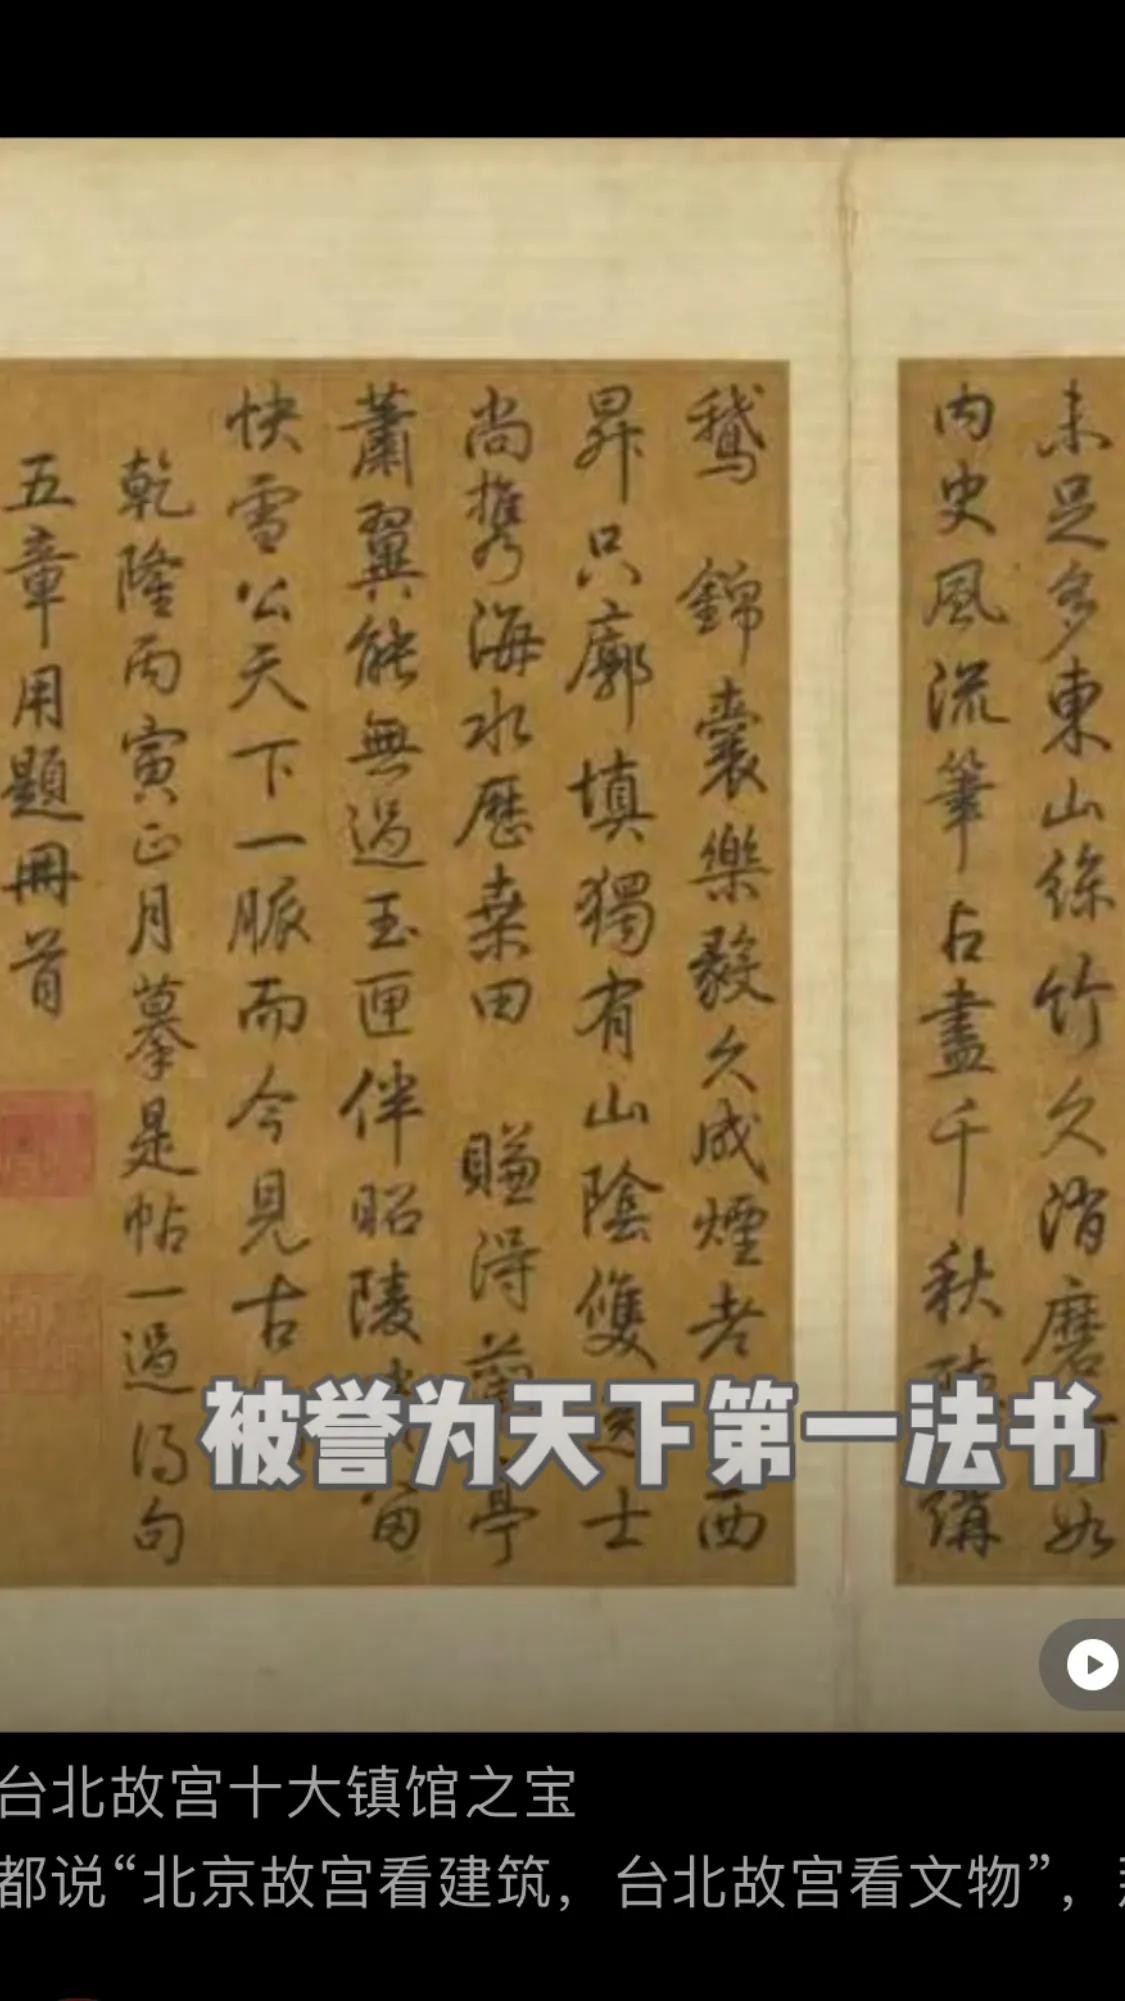 未足多東山絲竹久消磨
如
内史風流筆占盡千秋
講
鵝 錦囊樂毅久成煙老
西
昇只廓填獨有山陰雙
士
尚携海水歷桒田 賺得蘭
亭
蕭翼能無過玉匣伴昭陵
快雪公天下一脈而今見古
乾隆丙寅正月摹是帖一過得句
五章用題冊首
被誉为天下第一法书
台北故宫十大镇馆之宝
都说“北京故宫看建筑，台北故宫看文物”，